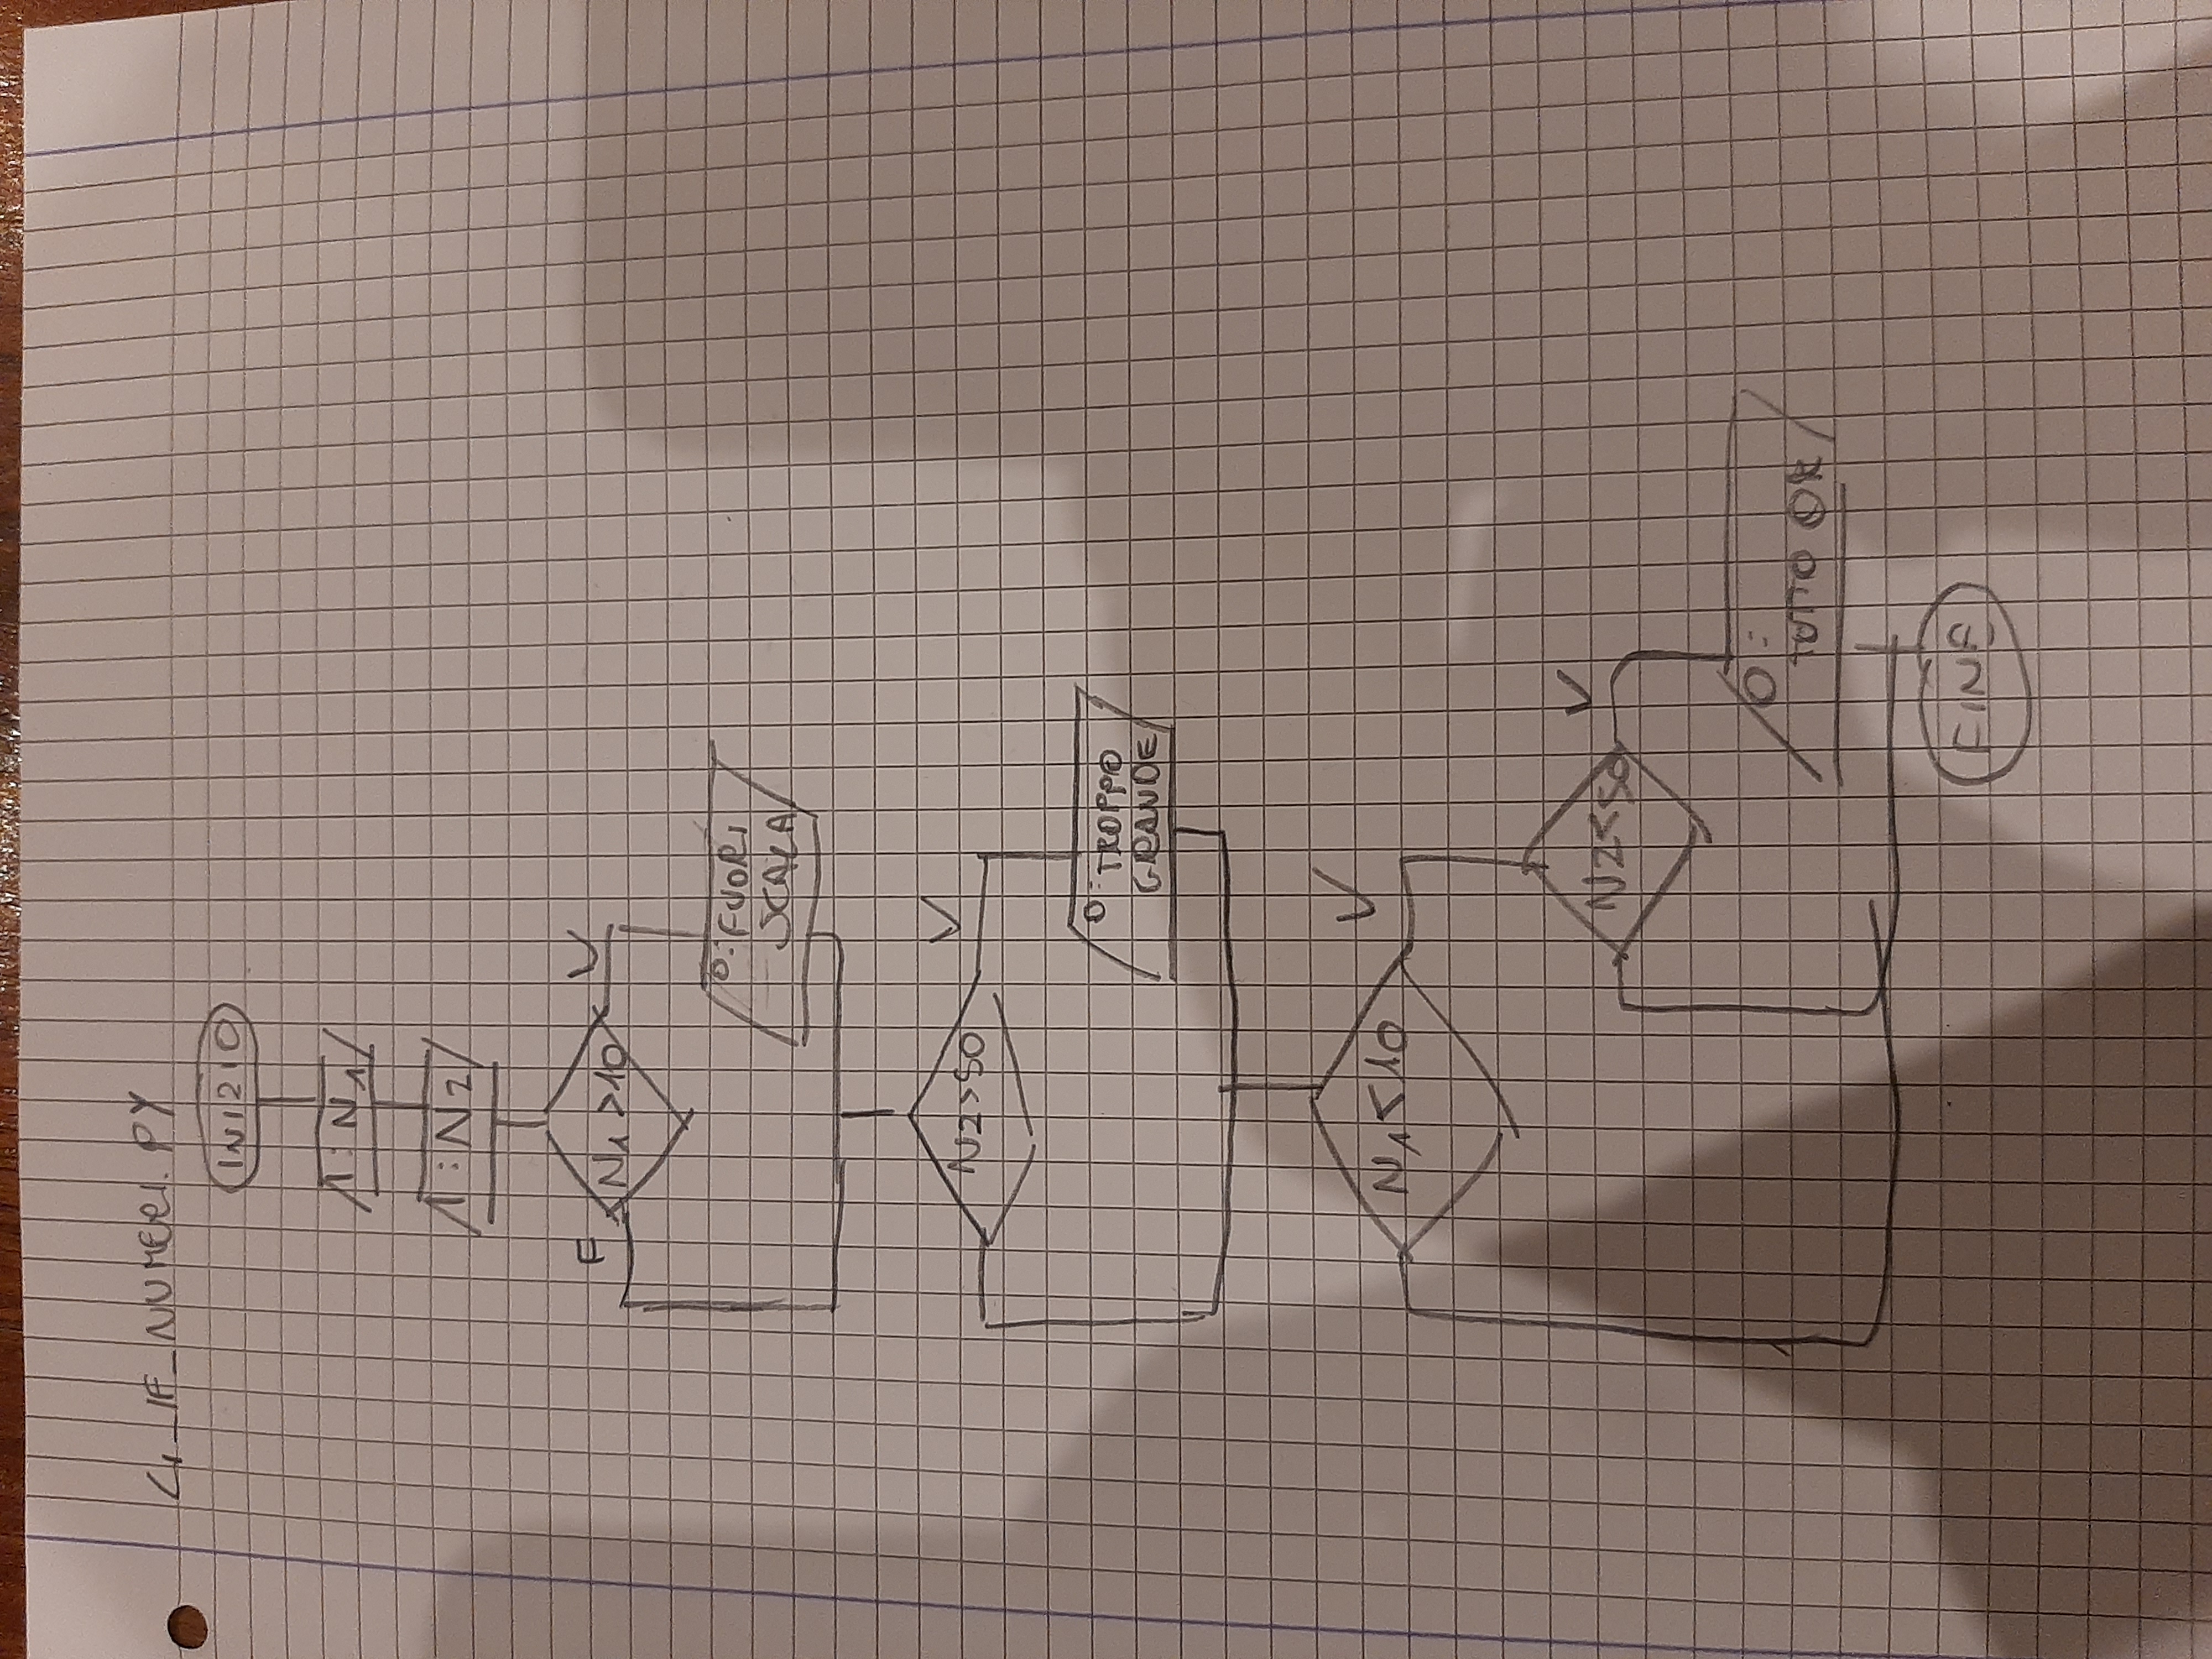 4_IF_NUMERI.PY
INIZIO
I: N1
I: N2
N1 > 10
F
V
O: FUORI
SCALA
N2 > 50
V
O: TROPPO
GRANDE
N1 < 10
V
N2 < 50
V
O:
TUTTO OK
FINE